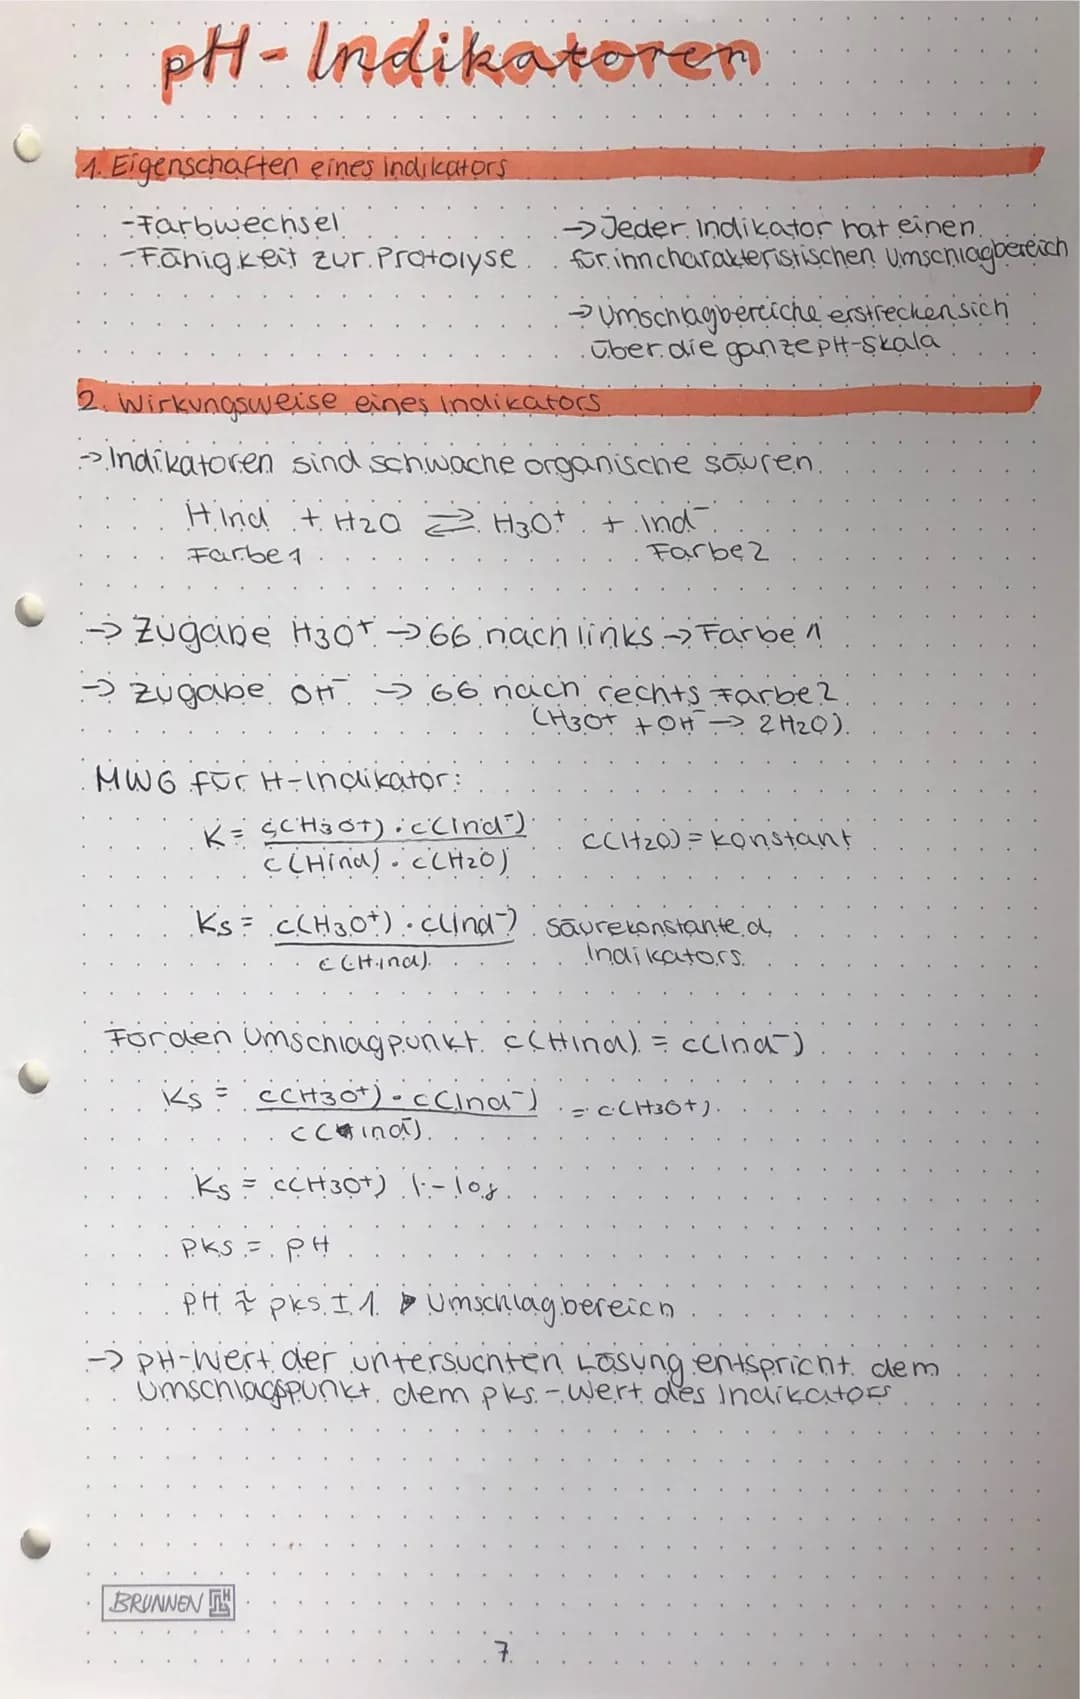 pH-Indikatoren
1. Eigenschaften eines Indikators
-Farbwechsel
-Fähigkeit zur Protolyse
→Jeder Indikator hat einen
für ihn charakteristischen Umschlagbereich
→Umschlagbereiche erstrecken sich
über die ganze pH-Skala
2. Wirkungsweise eines Indikators
→Indikatoren sind schwache organische säuren
HInd + H2O ⇌ H3O+ + ind⁻
Farbe 1 Farbe 2
→ Zugabe H3O+ → GG nach links → Farbe 1
→ Zugabe OH⁻ → GG nach rechts Farbe 2
(H3O+ + OH⁻ → 2H2O)
MWG für H-Indikator:
K = c(H3O+) · c(Ind⁻) / c(Hind) · c(H2O) c(H2O) = konstant
Ks = c(H3O+) · c(ind⁻) / c(Hind) säurekonstante d.
Indikators
Für den Umschlagpunkt c(Hind) = c(ind⁻)
Ks = c(H3O+) · c(Ind⁻) / c(ind⁻) = c(H3O+)
Ks = c(H3O+) |-log
pKs = pH
pH ≈ pks ± 1 ▶ Umschlagbereich
→ pH-Wert der untersuchten Lösung entspricht dem
Umschlagspunkt dem pks-Wert des Indikators
BRUNNEN
7